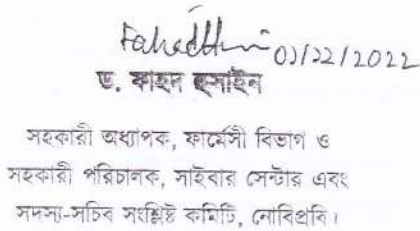 ০১/১২/2022
ড. কাহন হুসাইন
সহকারী অধ্যাপক, ফার্মেসী বিভাগ ও
সহকারী পরিচালক, সাইবার সেন্টার এবং
সদস্য-সচিব সংশ্লিষ্ট কমিটি, নোবিপ্রবি।